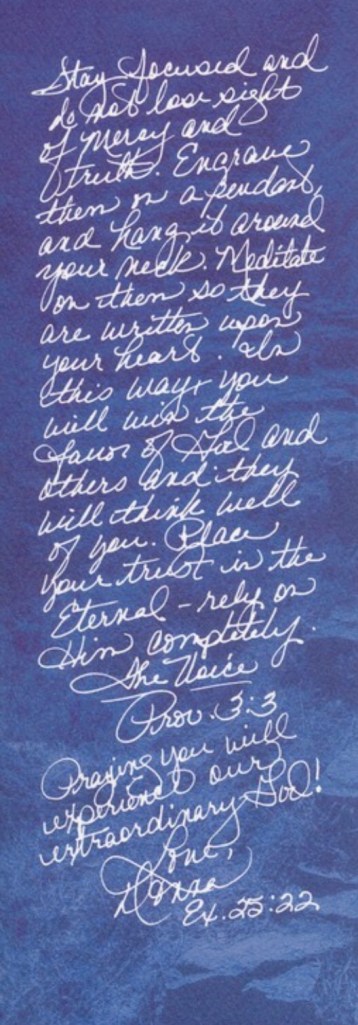 Stay focused and
do not lose sight
of mercy and
truth. Engrave
them on a pendant,
and hang it around
your neck. Meditate
on them so they
are written upon
your heart. In
this way, you
will win the
favor of God and
others and they
will think well
of you. Place
your trust in the
Eternal - rely on
Him completely.
The Voice
Prov. 3:3
Praying you will
experience our
extraordinary God!
Love,
Donna
Ex. 25:22